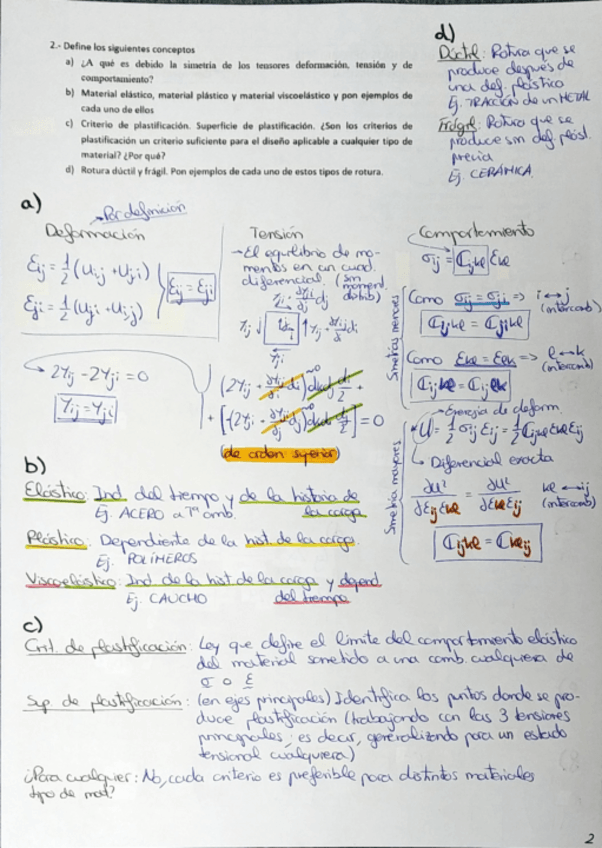 2.- Define los siguientes conceptos
a) ¿A qué es debido la simetría de los tensores deformación, tensión y de
comportamiento?
b) Material elástico, material plástico y material viscoelástico y pon ejemplos de
cada uno de ellos
c) Criterio de plastificación. Superficie de plastificación. ¿Son los criterios de
plastificación un criterio suficiente para el diseño aplicable a cualquier tipo de
material? ¿Por qué?
d) Rotura dúctil y frágil. Pon ejemplos de cada uno de estos tipos de rotura.
d)
Dúctil: Rotura que se
produce después de
una def. plástica
Ej. TRACCIÓN de un METAL
Frágil: Rotura que se
produce sin def. plást.
previa
Ej. CERÁMICA.
a)
Por definición
Deformación
εij = 1/2 (Ui,j + Uj,i)
εji = 1/2 (Uj,i + Ui,j)
εij = εji
2τij - 2τji = 0
τij = τji
Tensión
→ El equilibrio de mo-
mentos en un cuad.
diferencial. (sin
moment.
distrib)
= 0
(de orden superior)
Comportamiento
σij = Cijkl εkl
Simetrías menores
Como σij = σji => i↔j
(intercamb)
Cijkl = Cjikl
Como εkl = εlk => l↔k
(intercamb)
Cijkl = Cijlk
Simetría mayores
Energía de deform.
U = 1/2 σij εij = 1/2 Cijkl εkl εij
Diferencial exacta
∂U²/∂εij εkl = ∂U²/∂εkl εij kl ↔ ij
(intercamb)
Cijkl = Cklij
b)
Elástico: Ind. del tiempo y de la historia de
la carga
Ej. ACERO a Tª amb.
Plástico: Dependiente de la hist. de la carga.
Ej. POLÍMEROS
Viscoelástico: Ind. de la hist de la carga y depend
del tiempo
Ej. CAUCHO
c)
Crit. de plastificación: Ley que define el límite del comportamiento elástico
del material sometido a una comb. cualquiera de
σ o ε
Sup. de plastificación: (en ejes principales) Identifica los puntos donde se pro-
duce plastificación (trabajando con las 3 tensiones
principales; es decir, generalizando para un estado
tensional cualquiera)
¿Para cualquier: No, cada criterio es preferible para distintos materiales
tipo de mat?
2